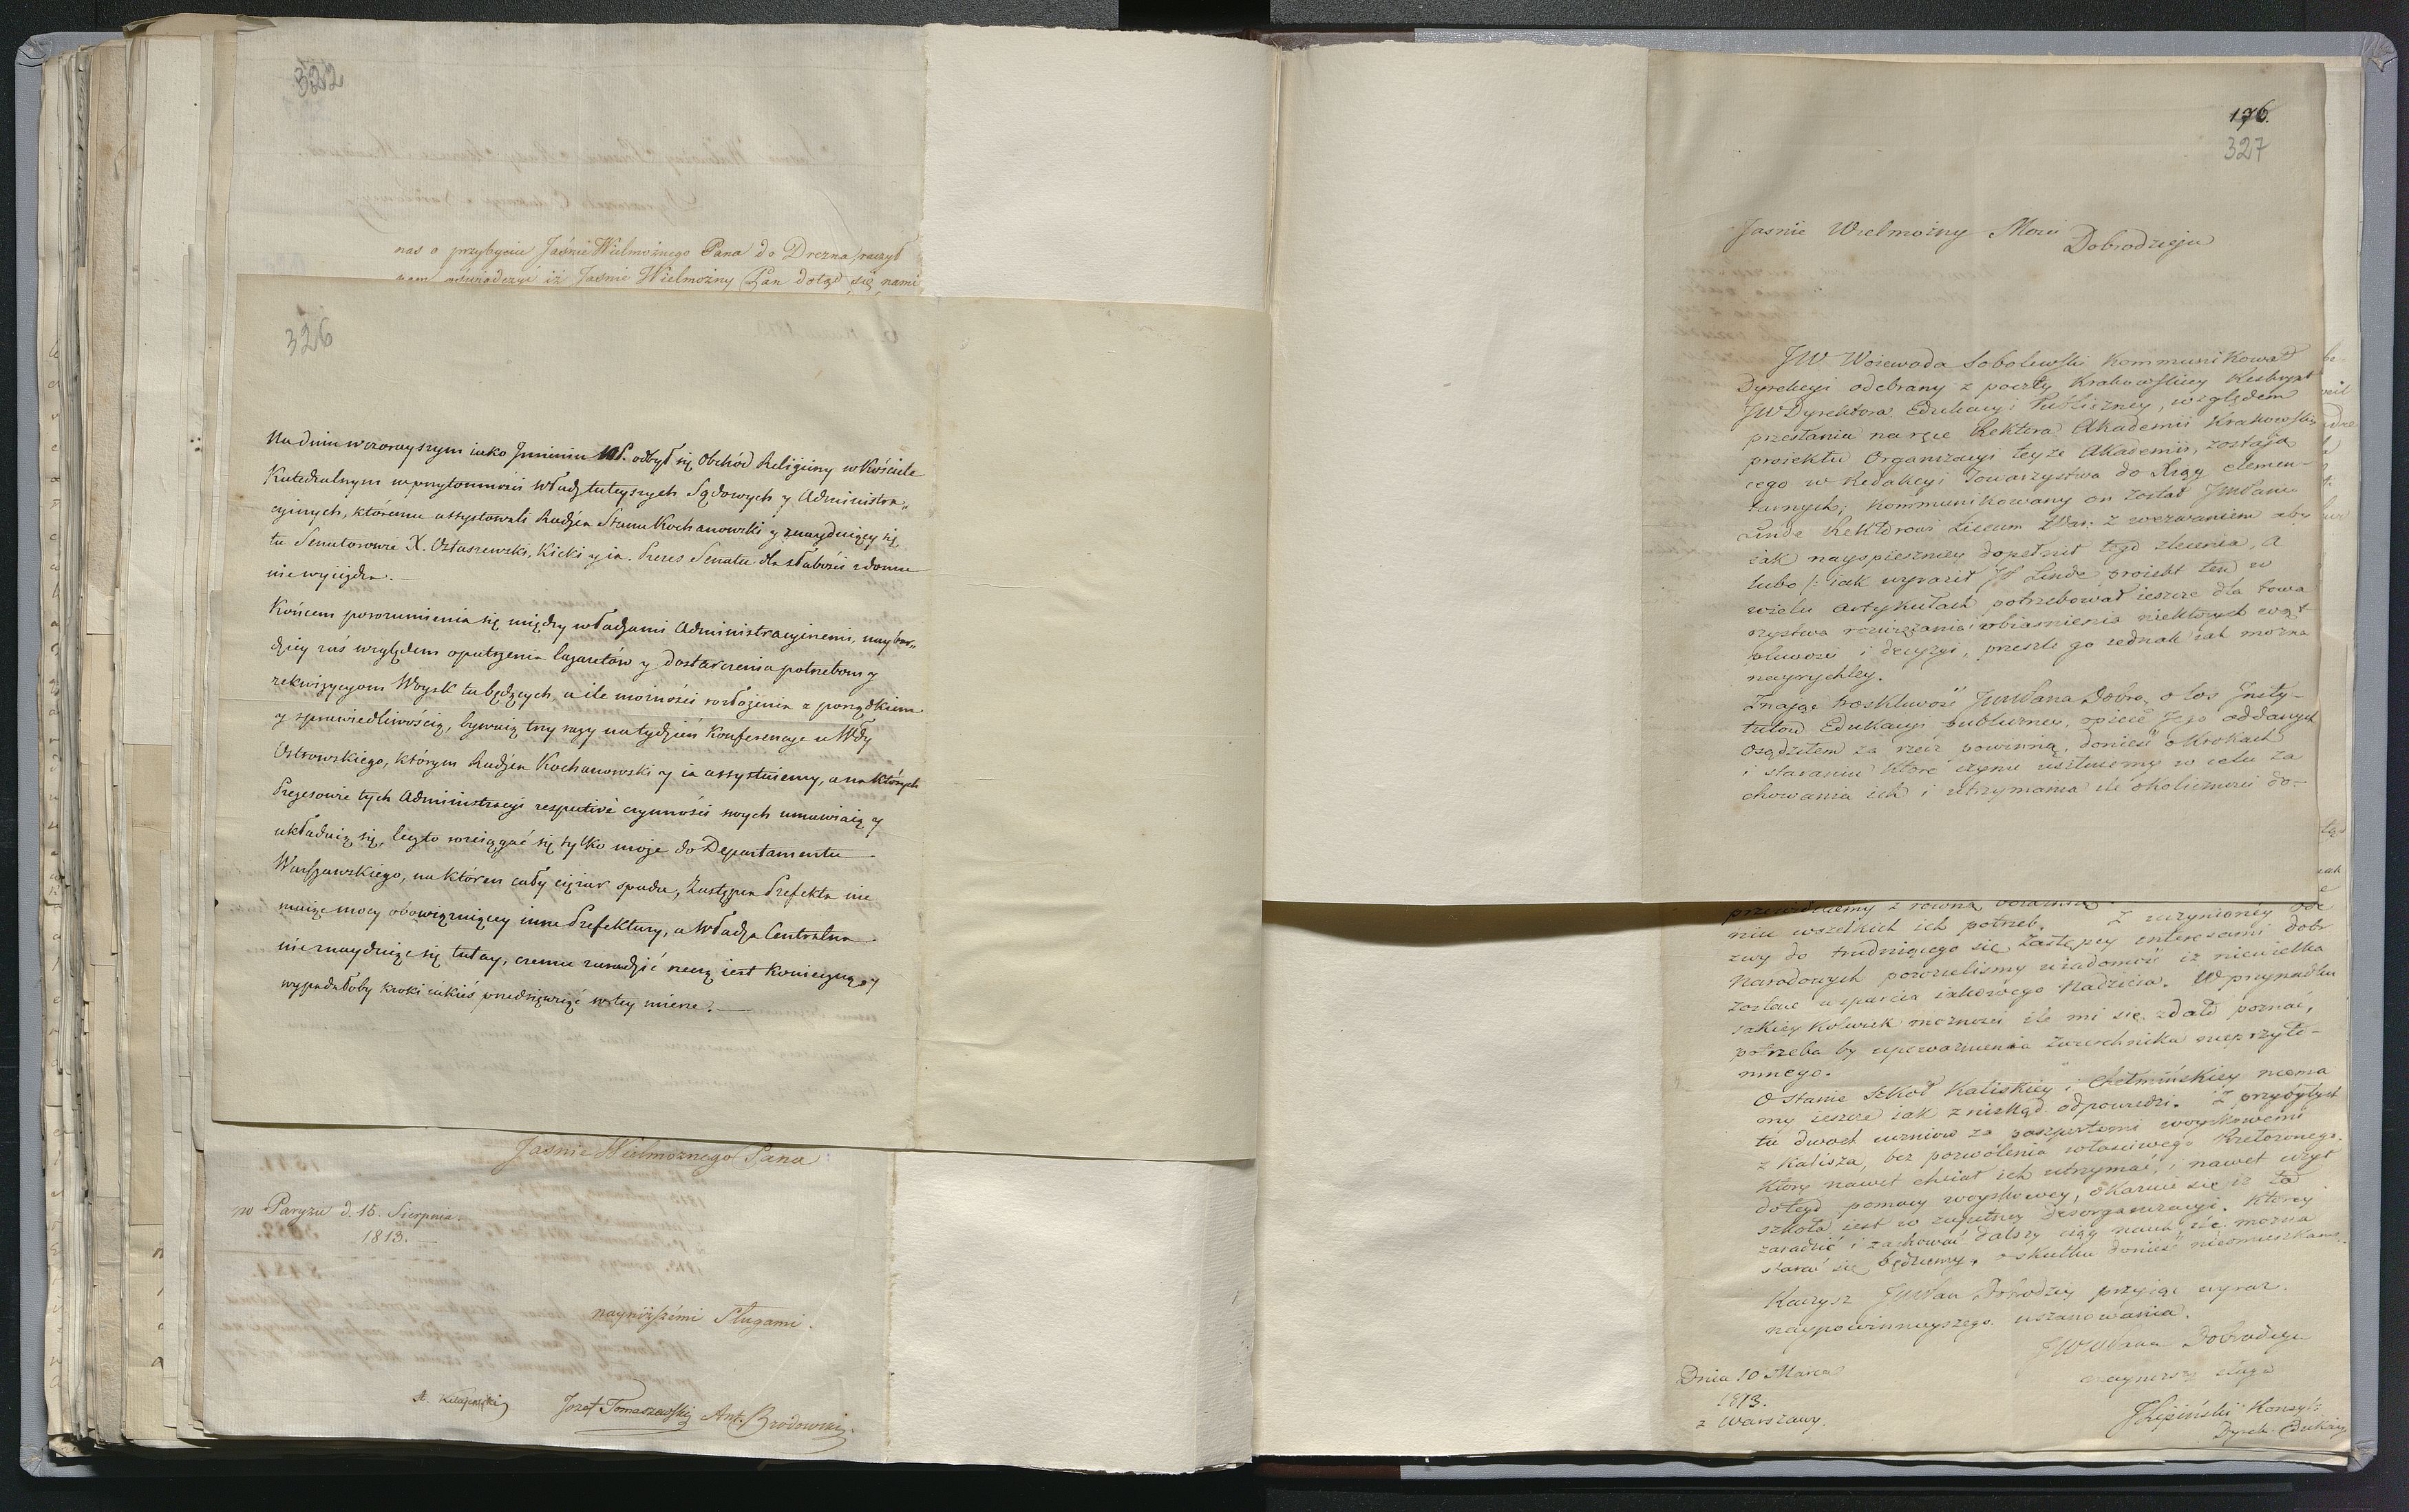 322
nas o przybyciu Jaśnie Wielmożnego Pana do Drezna, raczył
nam oświadczyć iż Jaśnie Wielmożny Pan dotąd się nami
326
Na dniu wczorayszym iako Imieniu odbył się Obchód Religiiny w Kościele
Katedralnym w przytomności Władz tuteyszych Sądowych y Administra„
cyinych, któremu assystowali Radzca Stanu Kochanowski y znayduiący się
tu Senatorowie X. Ożtaszewski, Kicki y ia. Prezes Senatu dla słabości z domu
nie wyiżdża. —
Końcem porozumienia się między władzami Administracyinemi, naybar„
dziey zaś względem opatrzenia lazaretów y dostarczenia potrzebom y
rekwizycyom Woysk tu będących, a ile możności rozłożenia z porządkiem
y sprawiedliwością, bywaią trzy razy na tydzień Konferencye u Wdy
Ostrowskiego, którym Radzca Kochanowski y ia assystuiemy, a na których
Prezesowie tych Administracyi respective czynności swych umawiaią y
układaią się, lecz to rozciągać się tylko może do Departamentu
Warszawskiego, na którem cały ciężar spada, Zastępca Prefekta nie
maiąc mocy obowiązuiącey inne Prefektury, a Władza Centralna
nie znayduiąc się tutay, czemu zaradzić rzeczą iest konieczną, y
wypadałoby kroki iakieś przedsięwziąć w tey mierze. —
Jaśnie Wielmożnego Pana
w Paryżu d. 15. Sierpnia
1813. —
nayniższemi Sługami.
Józef Tomaszewski Ant. Brodowski
196.
327
Jaśnie Wielmożny Mości
Dobrodzieju
JW Woiewoda Sobolewski Kommunikował
Dyrekcyi odebrany z poczty Krakowskiey Reskrypt
JW Dyrektora Edukacyi Publiczney, względem
przesłania na ręce Rektora Akademii Krakowskiey
proiektu Organizacyi teyże Akademii, zostaią
cego w Redakcyi Towarzystwa do Xiąg elemen-
tarnych; kommunikowany on został JmPanu
Linde Rektorowi Liceum War: z wezwaniem aby
iak nayspieszniey dopełnił tego zlecenia, a
lubo /: iak wyraził JP Linde proiekt ten w
wielu artykułach potrzebował ieszcze dla towa
rzystwa rozwiązania i obiaśnienia niektórych wąt
pliwości i decyzyi, prześle go iednak iak można
nayrychley.
Znaiąc troskliwość JWWPana Dobro. o los Insty-
tutów Edukacyi publiczney, opiece Jego oddanych
osądziłem za rzecz powinną, donieść o krokach
i staraniu które czynić usiłuiemy w celu za
chowania ich i utrzymania ile okoliczności do-
niu wszelkich ich potrzeb. Z uczynioney ode
zwy do trudniącego się Zastępcy interessami dobr
Narodowych powzieliśmy wiadomość iż niewielka
zostaie wsparcia iakowego nadzieia. W przypadku
iakiey kolwiek możności ile mi się zdało poznać,
potrzeba by upoważnienia Zwierzchnika nieprzyto-
mnego.
O stanie Szkoł Kaliskiey i Chełmińskiey niema
my ieszcze iak znikąd odpowiedzi. Z przybyłych
tu dwoch uczniow za paszportami woyskowemi
z Kalisza, bez pozwolenia właściwego Rektora onego,
który nawet chciał ich utrzymać, i nawet użył
dotego pomocy woyskowey, okazuie się iż ta
szkoła iest w zupełney desorganizacyi. Którey
zaradzić i zachować dalszy ciąg nauk ile można
starać się będziemy, o skutku donieść nieomieszkamy.
Raczysz JWWPan Dobrodziey przyiąć wyraz
naypowinnieyszego uszanowania.
JWWPana Dobrodzieia
nayniższy sługa
JLipiński Konsyl:
Dyrek: Edukacy
Dnia 10 Marca
1813.
z Warszawy.